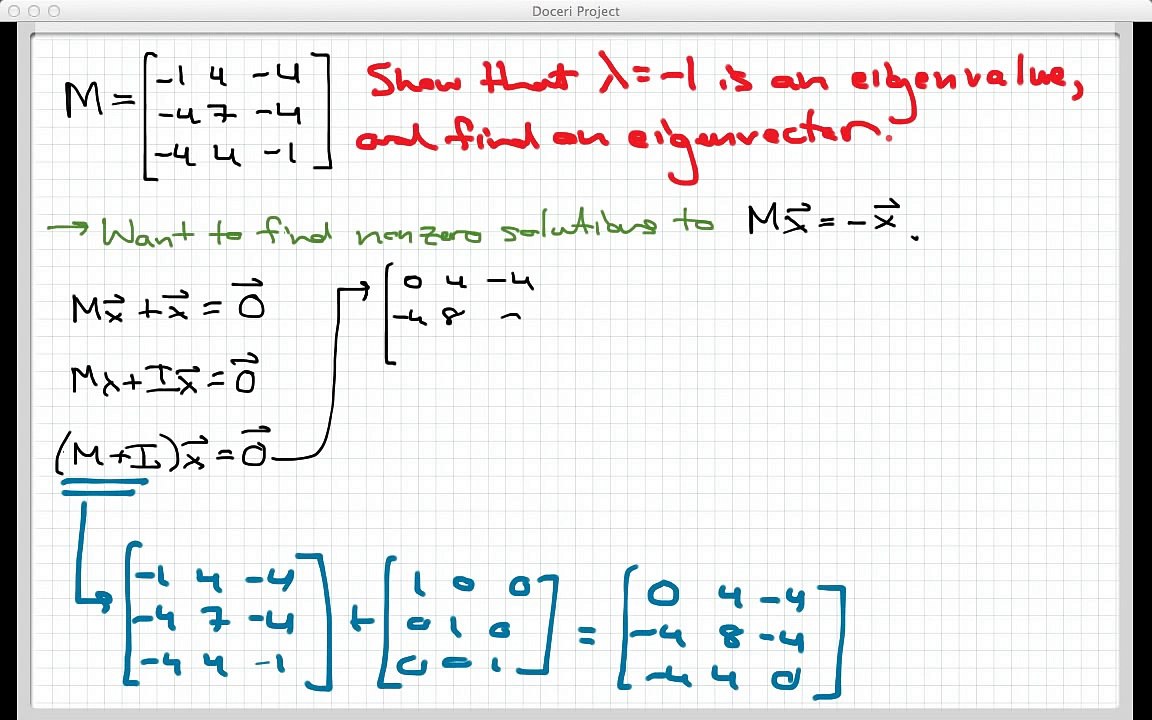 Doceri Project
M = [ -1 4 -4
-4 7 -4
-4 4 -1 ]
Show that λ = -1 is an eigenvalue,
and find an eigenvector.
→ Want to find nonzero solutions to Mx⃗ = -x⃗.
Mx⃗ + x⃗ = 0⃗
Mx + Ix⃗ = 0⃗
(M + I)x⃗ = 0⃗
[ 0 4 -4
-4 8 -
[ -1 4 -4
-4 7 -4
-4 4 -1 ]
+
[ 1 0 0
0 1 0
0 0 1 ]
=
[ 0 4 -4
-4 8 -4
-4 4 0 ]